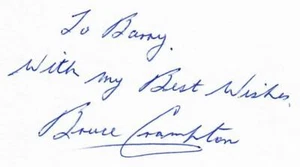 To Barry.
With my Best Wishes.
Bruce Crampton